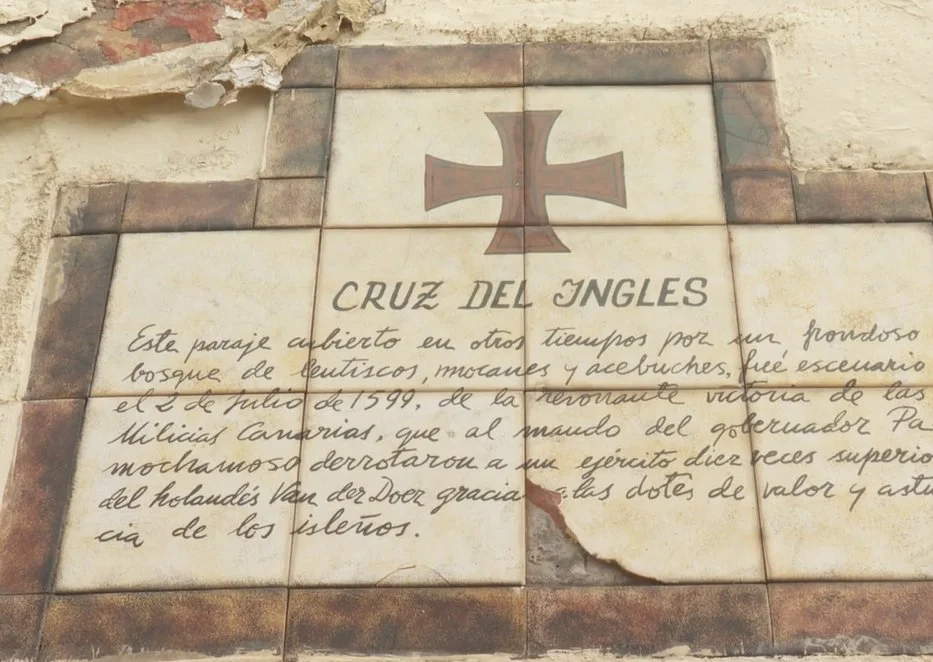 CRUZ DEL INGLES
Este paraje cubierto en otros tiempos por un frondoso
bosque de lentiscos, mocanes y acebuches, fué escenario
el 2 de Julio de 1599, de la resonante victoria de las
Milicias Canarias, que al mando del gobernador Pa
mochamoso derrotaron a un ejército diez veces superio
del holandés Van der Doez gracia a las dotes de valor y astu
cia de los isleños.